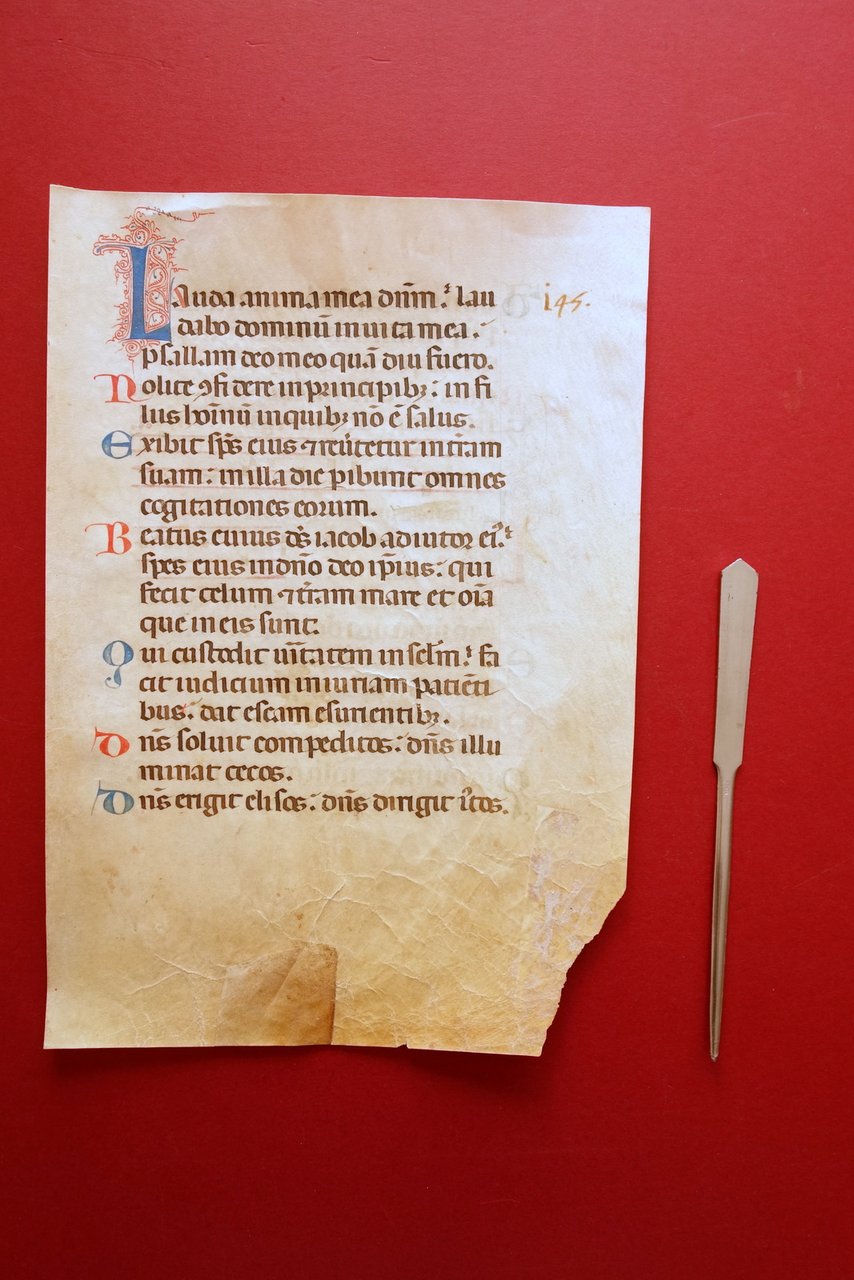 Lauda anima mea dn̄m: lau i45.
dabo dominū in uita mea.
psallam deo meo quā diu fuero.
Nolite ꝯfidere in principibꝫ: in fi
liis hoīnū in quibꝫ nō ē salus.
Exibit sp̄s eius ⁊ reūtetur in tr̄am
suam: in illa die ꝑibunt omnes
cogitationes eorum.
Beatus cuius ds̄ iacob adiutor ei:
spes eius in dn̄o deo ip̄ius: qui
fecit celum ⁊ tr̄am mare et oīa
que in eis sunt.
Qui custodit ūitatem in sclm̄: fa
cit iudicium iniuriam patiēti
bus: dat escam esurientibꝫ.
Dn̄s soluit compeditos: dn̄s illu
minat cecos.
Dn̄s erigit elisos: dn̄s dirigit i̾tos.